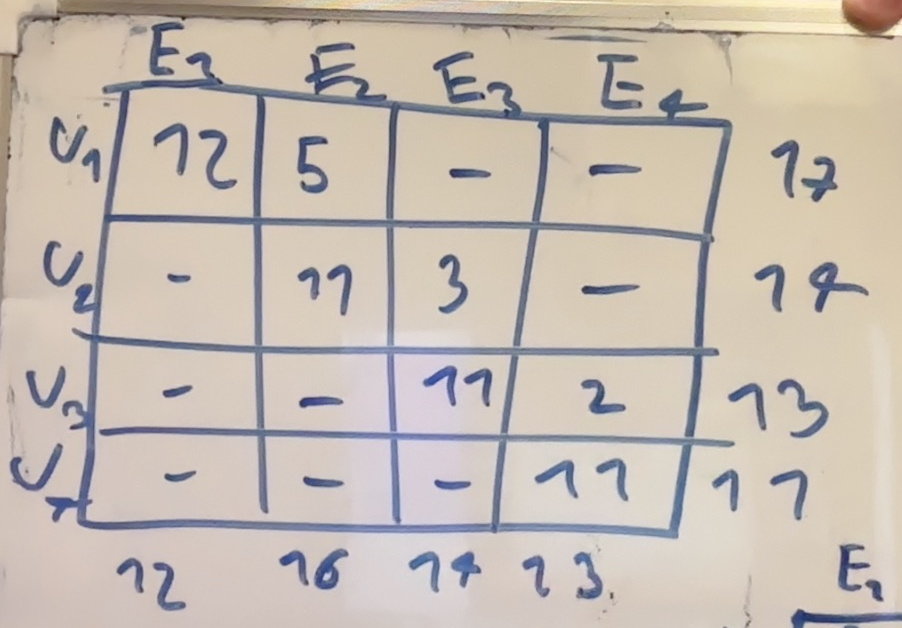 E₁ E₂ E₃ E₄
U₁ 12 5 - - 17
U₂ - 11 3 - 14
U₃ - - 11 2 13
U₄ - - - 11 11
12 16 14 13
E₁